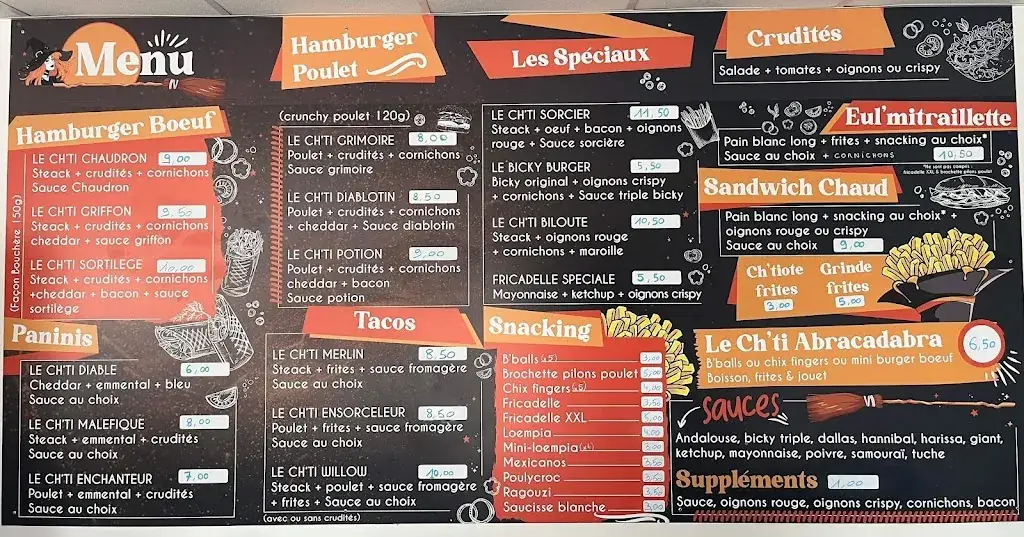 Menu
Hamburger Boeuf
(Façon Bouchère 150g)
LE CH'TI CHAUDRON 9,00
Steack + crudités + cornichons
Sauce Chaudron
LE CH'TI GRIFFON 9,50
Steack + crudités + cornichons
cheddar + sauce griffon
LE CH'TI SORTILEGE 10,00
Steack + crudités + cornichons
+cheddar + bacon + sauce
sortilège
Paninis
LE CH'TI DIABLE 6,00
Cheddar + emmental + bleu
Sauce au choix
LE CH'TI MALEFIQUE 8,00
Steack + emmental + crudités
Sauce au choix
LE CH'TI ENCHANTEUR 7,00
Poulet + emmental + crudités
Sauce au choix
Hamburger
Poulet
(crunchy poulet 120g)
LE CH'TI GRIMOIRE 8,00
Poulet + crudités + cornichons
Sauce grimoire
LE CH'TI DIABLOTIN 8,50
Poulet + crudités + cornichons
+ cheddar + Sauce diablotin
LE CH'TI POTION 9,00
Poulet + crudités + cornichons
cheddar + bacon
Sauce potion
Tacos
LE CH'TI MERLIN 8,50
Steack + frites + sauce fromagère
Sauce au choix
LE CH'TI ENSORCELEUR 8,50
Poulet + frites + sauce fromagère
Sauce au choix
LE CH'TI WILLOW 10,00
Steack + poulet + sauce fromagère
+ frites + Sauce au choix
(avec ou sans crudités)
Les Spéciaux
LE CH'TI SORCIER 11,50
Steack + oeuf + bacon + oignons
rouge + Sauce sorcière
LE BICKY BURGER 5,50
Bicky original + oignons crispy
+ cornichons + Sauce triple bicky
LE CH'TI BILOUTE 10,50
Steack + oignons rouge
+ cornichons + maroille
FRICADELLE SPECIALE 5,50
Mayonnaise + ketchup + oignons crispy
Snacking
B'balls (x5) 3,00
Brochette pilons poulet 5,00
Chix fingers (x5) 4,00
Fricadelle 3,50
Fricadelle XXL 5,00
Loempia 4,00
Mini-loempia (x4) 3,00
Mexicanos 3,50
Poulycroc 3,50
Ragouzi 3,50
Saucisse blanche 3,00
Crudités
Salade + tomates + oignons ou crispy
Eul'mitraillette
Pain blanc long + frites + snacking au choix*
Sauce au choix + CORNICHONS 10,50
*Ne sont pas compris
fricadelle XXL & brochette pilons poulet
Sandwich Chaud
Pain blanc long + snacking au choix* +
oignons rouge ou crispy
Sauce au choix 9,00
Ch'tiote
frites
3,00
Grinde
frites
5,00
Le Ch'ti Abracadabra
B'balls ou chix fingers ou mini burger boeuf
Boisson, frites & jouet
6,50
sauces
Andalouse, bicky triple, dallas, hannibal, harissa, giant,
ketchup, mayonnaise, poivre, samouraï, tuche
Suppléments 1,00
Sauce, oignons rouge, oignons crispy, cornichons, bacon